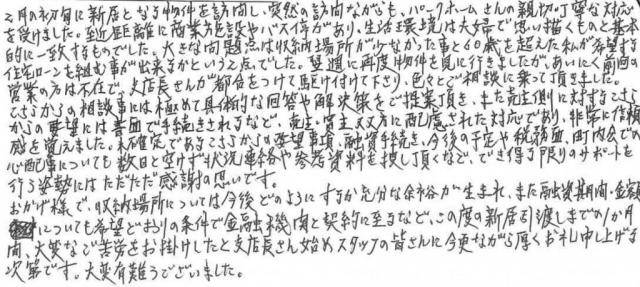 2月の初旬に新居となる物件を訪問し、突然の訪問ながらも、パークホームさんの親切丁寧な対応
を受けました。至近距離に商業施設やバス停があり、生活環境は夫婦で思い描くものと基本
的に一致するものでした。大きな問題点は収納場所が少なかった事と60歳を超えた私が希望する
住宅ローンを組む事が出来るかという2点でした。翌週に再度物件を見に行きましたが、あいにく前回の
営業の方は不在で、支店長さんが都合をつけて駆け付けて下さり、色々とご相談に乗って頂きました。
こちらからの相談事には極めて具体的な回答や解決策をご提案頂き、また売主側に対するこちら
からの要望には書面で手続きされるなど、売主・買主双方に配慮された対応であり、非常に信頼
感を覚えました。未確定であるこちらからの要望事項、融資手続き、今後の予定や税務面、町内会での
心配事についても数日と空けず状況連絡や参考資料を探し頂くなど、でき得る限りのサポートを
行う姿勢にはただただ感謝の思いです。
おかげ様で、収納場所については今後どのようにするか充分な余裕が生まれ、また融資期間・金額
についても希望どおりの条件で金融機関と契約に至るなど、この度の新居引渡しまでの1か月
間、大変なご苦労をお掛けしたと支店長さん始めスタッフの皆さんに今更ながら厚くお礼申し上げる
次第です。大変有難うございました。